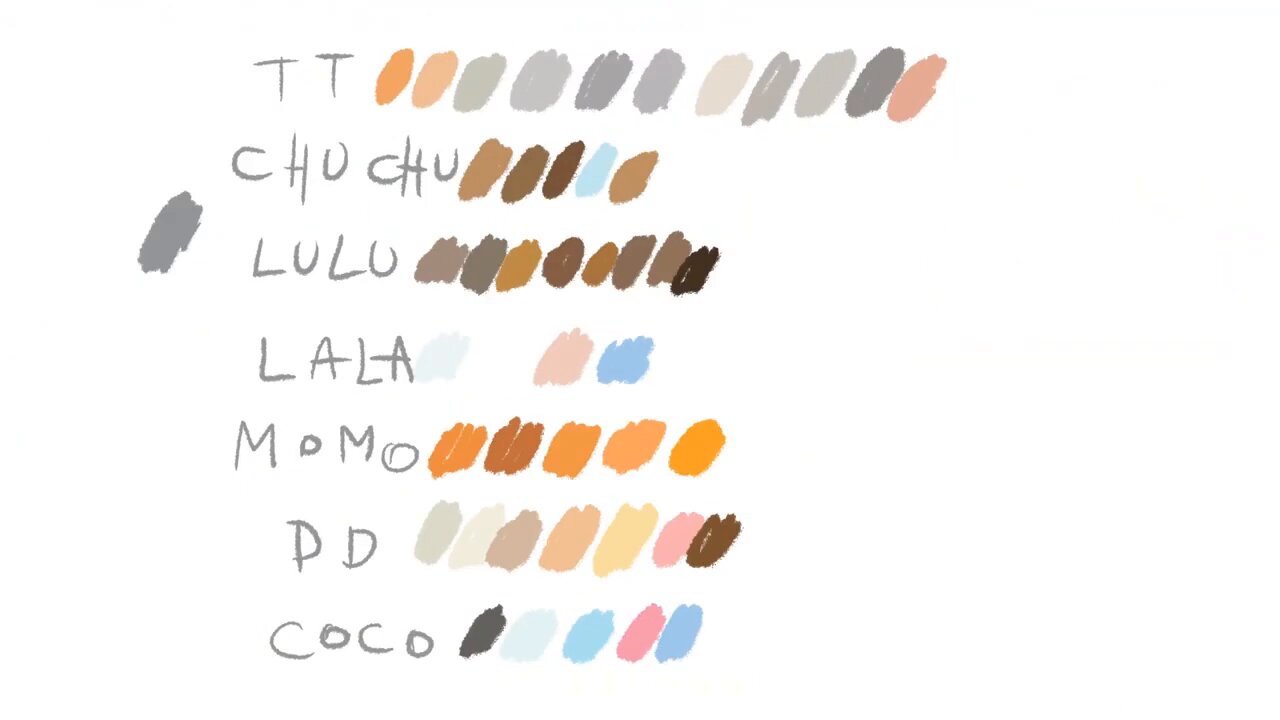 TT
CHUCHU
LULU
LALA
MOMO
DD
COCO